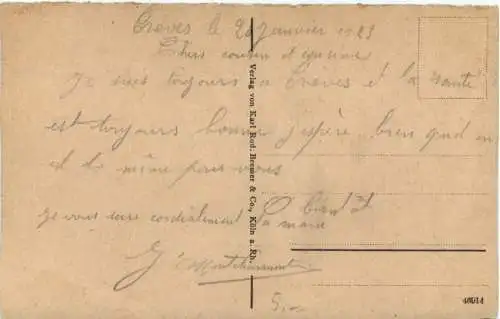 Trèves le 20 Janvier 1923
Chers cousin et cousine
Je suis toujours a Trèves et la santé
est toujours bonne j'espère bien qu'il en
et de même pour vous
Je vous serre cordialement
la main
A bientôt
Verlag von Karl Rud. Bremer & Co., Köln a. Rh.
5.-
46914